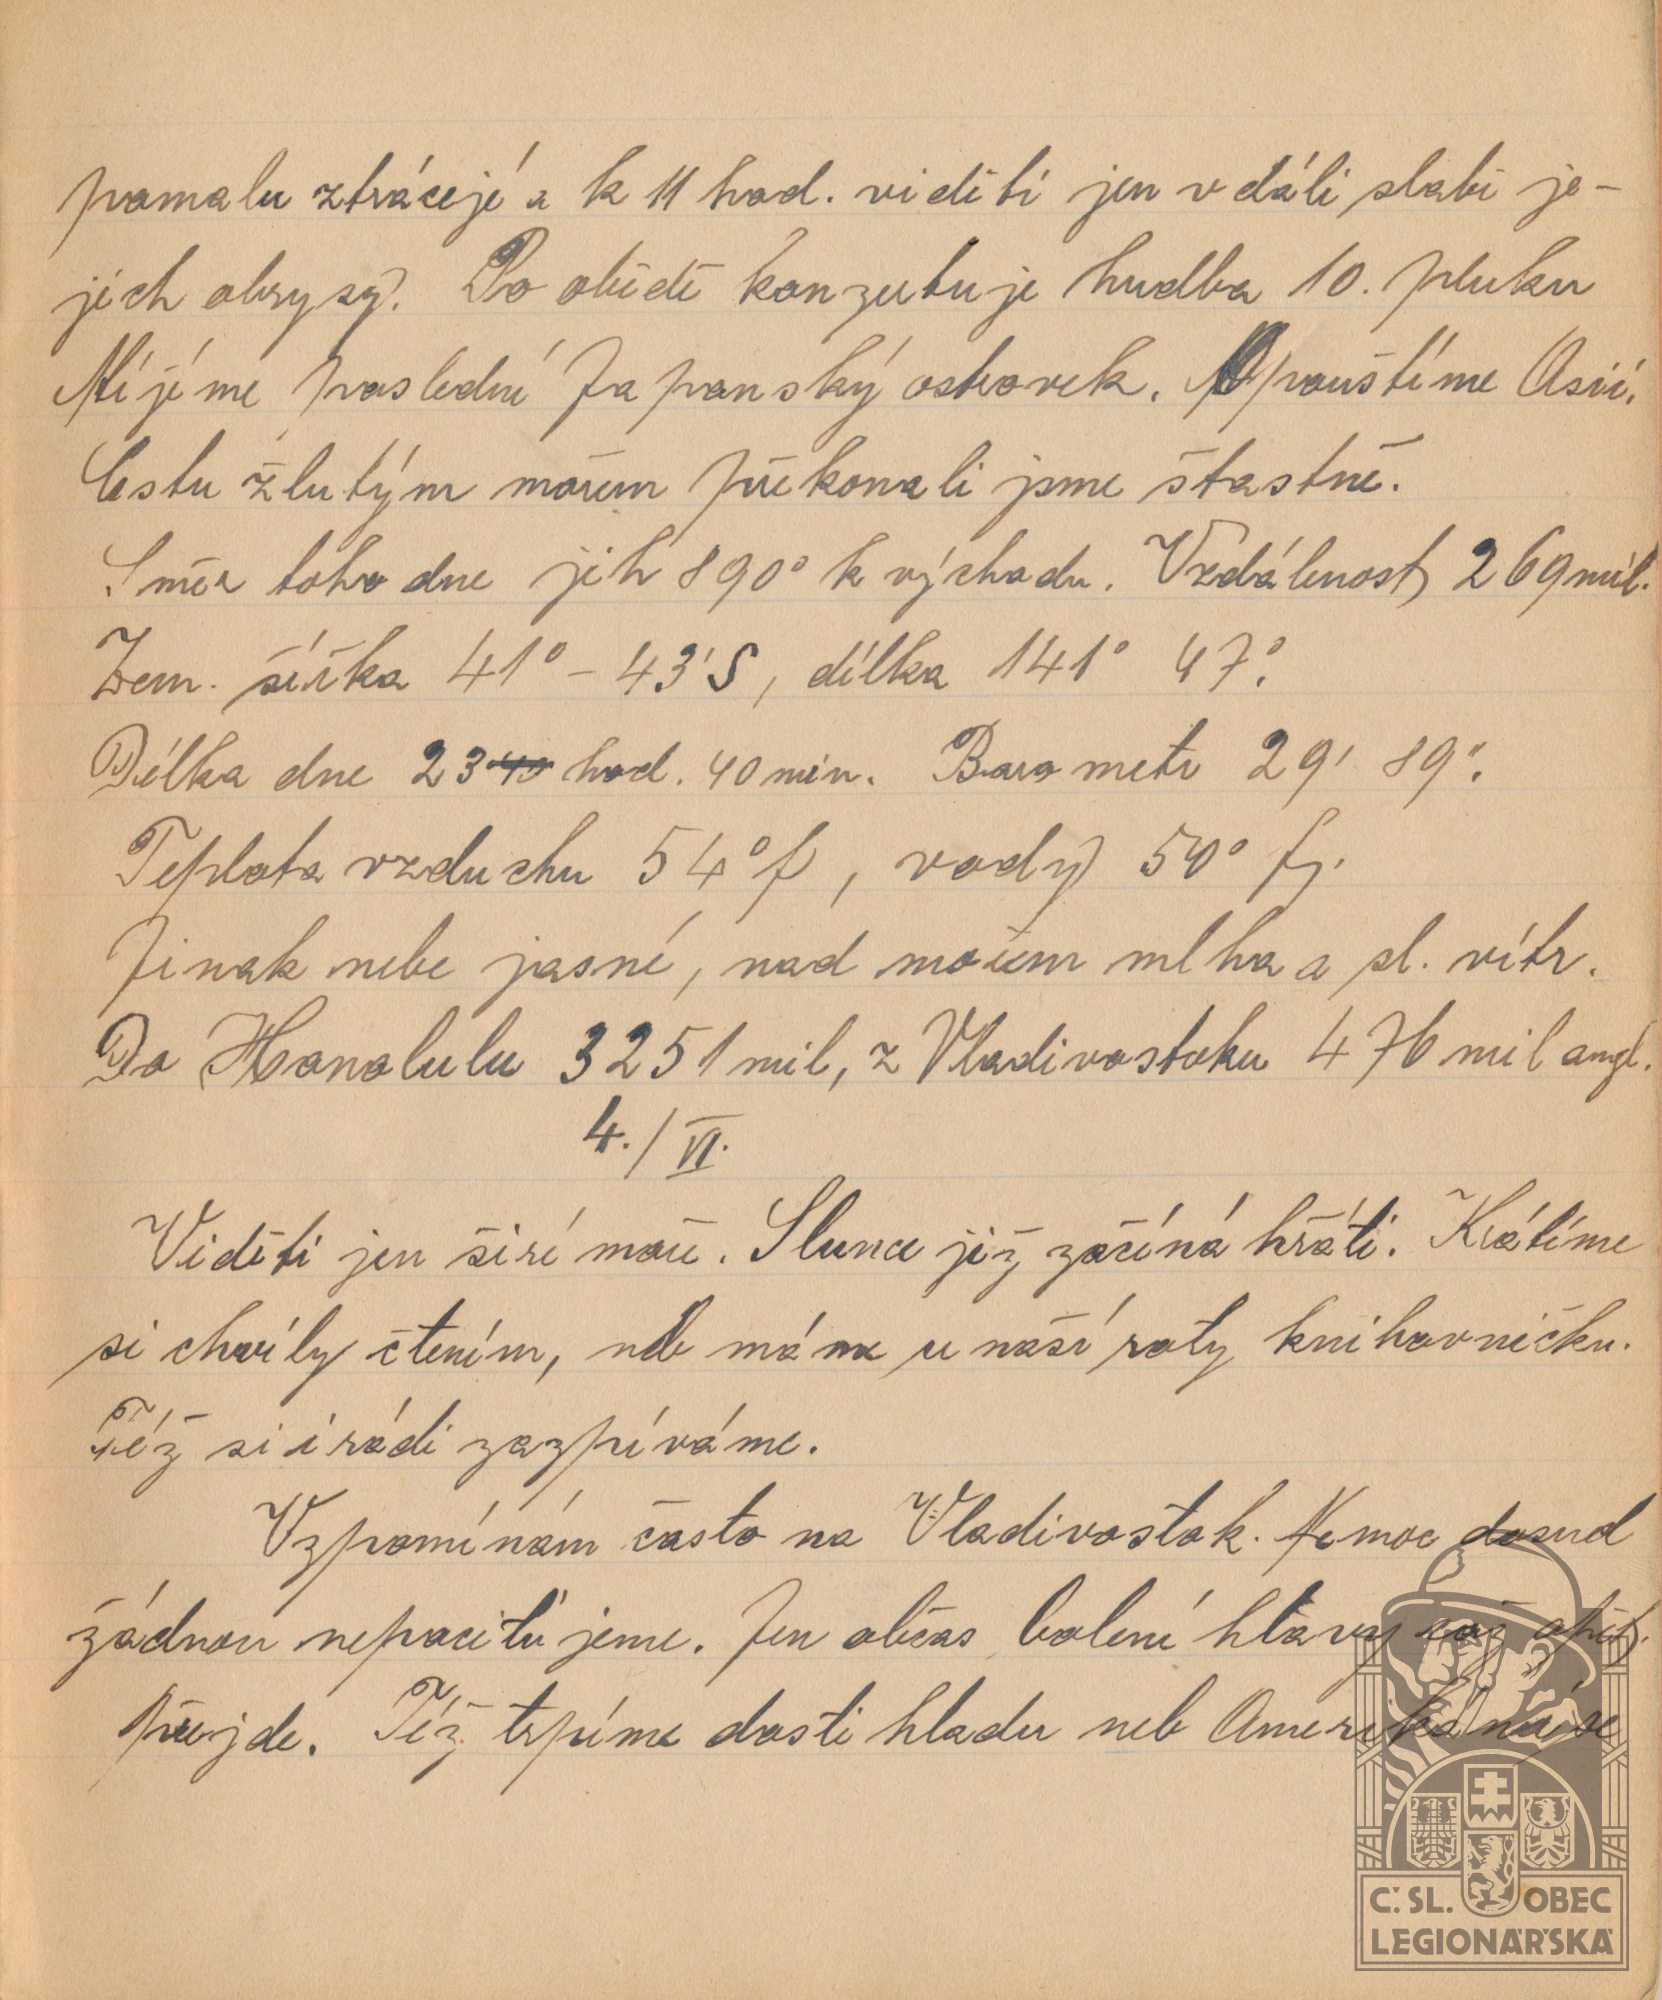 pomalu ztrácejí a k 11 hod. viděti jen v dáli slabě je-
jich obrysy. Po obědě konzertuje hudba 10. pluku
Míjíme poslední Japanský ostrovek. Opouštíme Asii.
Cestu žlutým mořem překonali jsme štastně.
Směr toho dne jih 890° k východu. Vzdálenost 269 mil.
Zem. šířka 41° - 43' S, délka 141° 47°.
Délka dne 23 hod. 40 min. Barometr 29' 89".
Teplota vzduchu 54° f, vody 50° f.
Jinak nebe jasné, nad mořem mlha a sl. vítr.
Do Honolulu 3251 mil, z Vladivostoku 476 mil angl.
4./VI.
Viděti jen širé moře. Slunce již začíná hřáti. Krátíme
si chvíly čtením, neb máme u naší roty knihovničku.
Též si i rádi zazpíváme.
Vzpomínám často na Vladivostok. Nemoc dosud
žádnou nepociťujeme. Jen občas bolení hlavy což opět
přejde. Též trpíme dosti hladu neb Amerikáni se
Č.SL. OBEC
LEGIONÁŘSKÁ